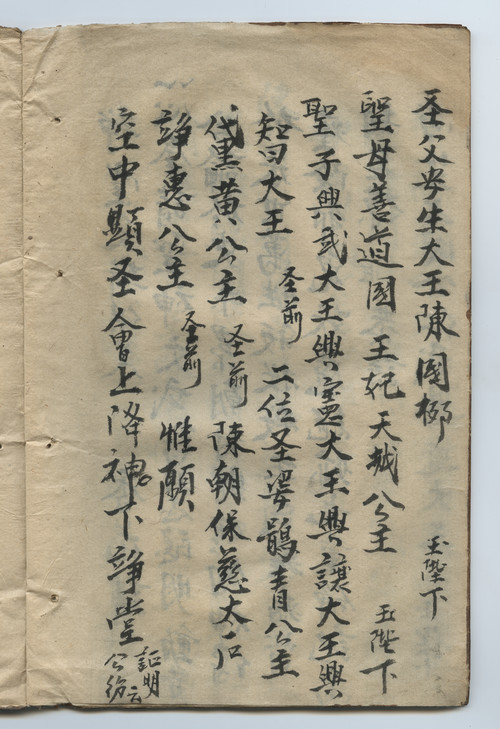 圣父安生大王陳國柳 玉陛下
聖母善道國王妃天城公主 玉陛下
聖子興武大王興憲大王興讓大王興
智大王 圣前 二位圣婆鵲青公主
代黒黄公主 圣前 陳朝保慈太后
諍惠公主 圣前 惟願
空中顯圣會上降神下諍堂 証明公紛云